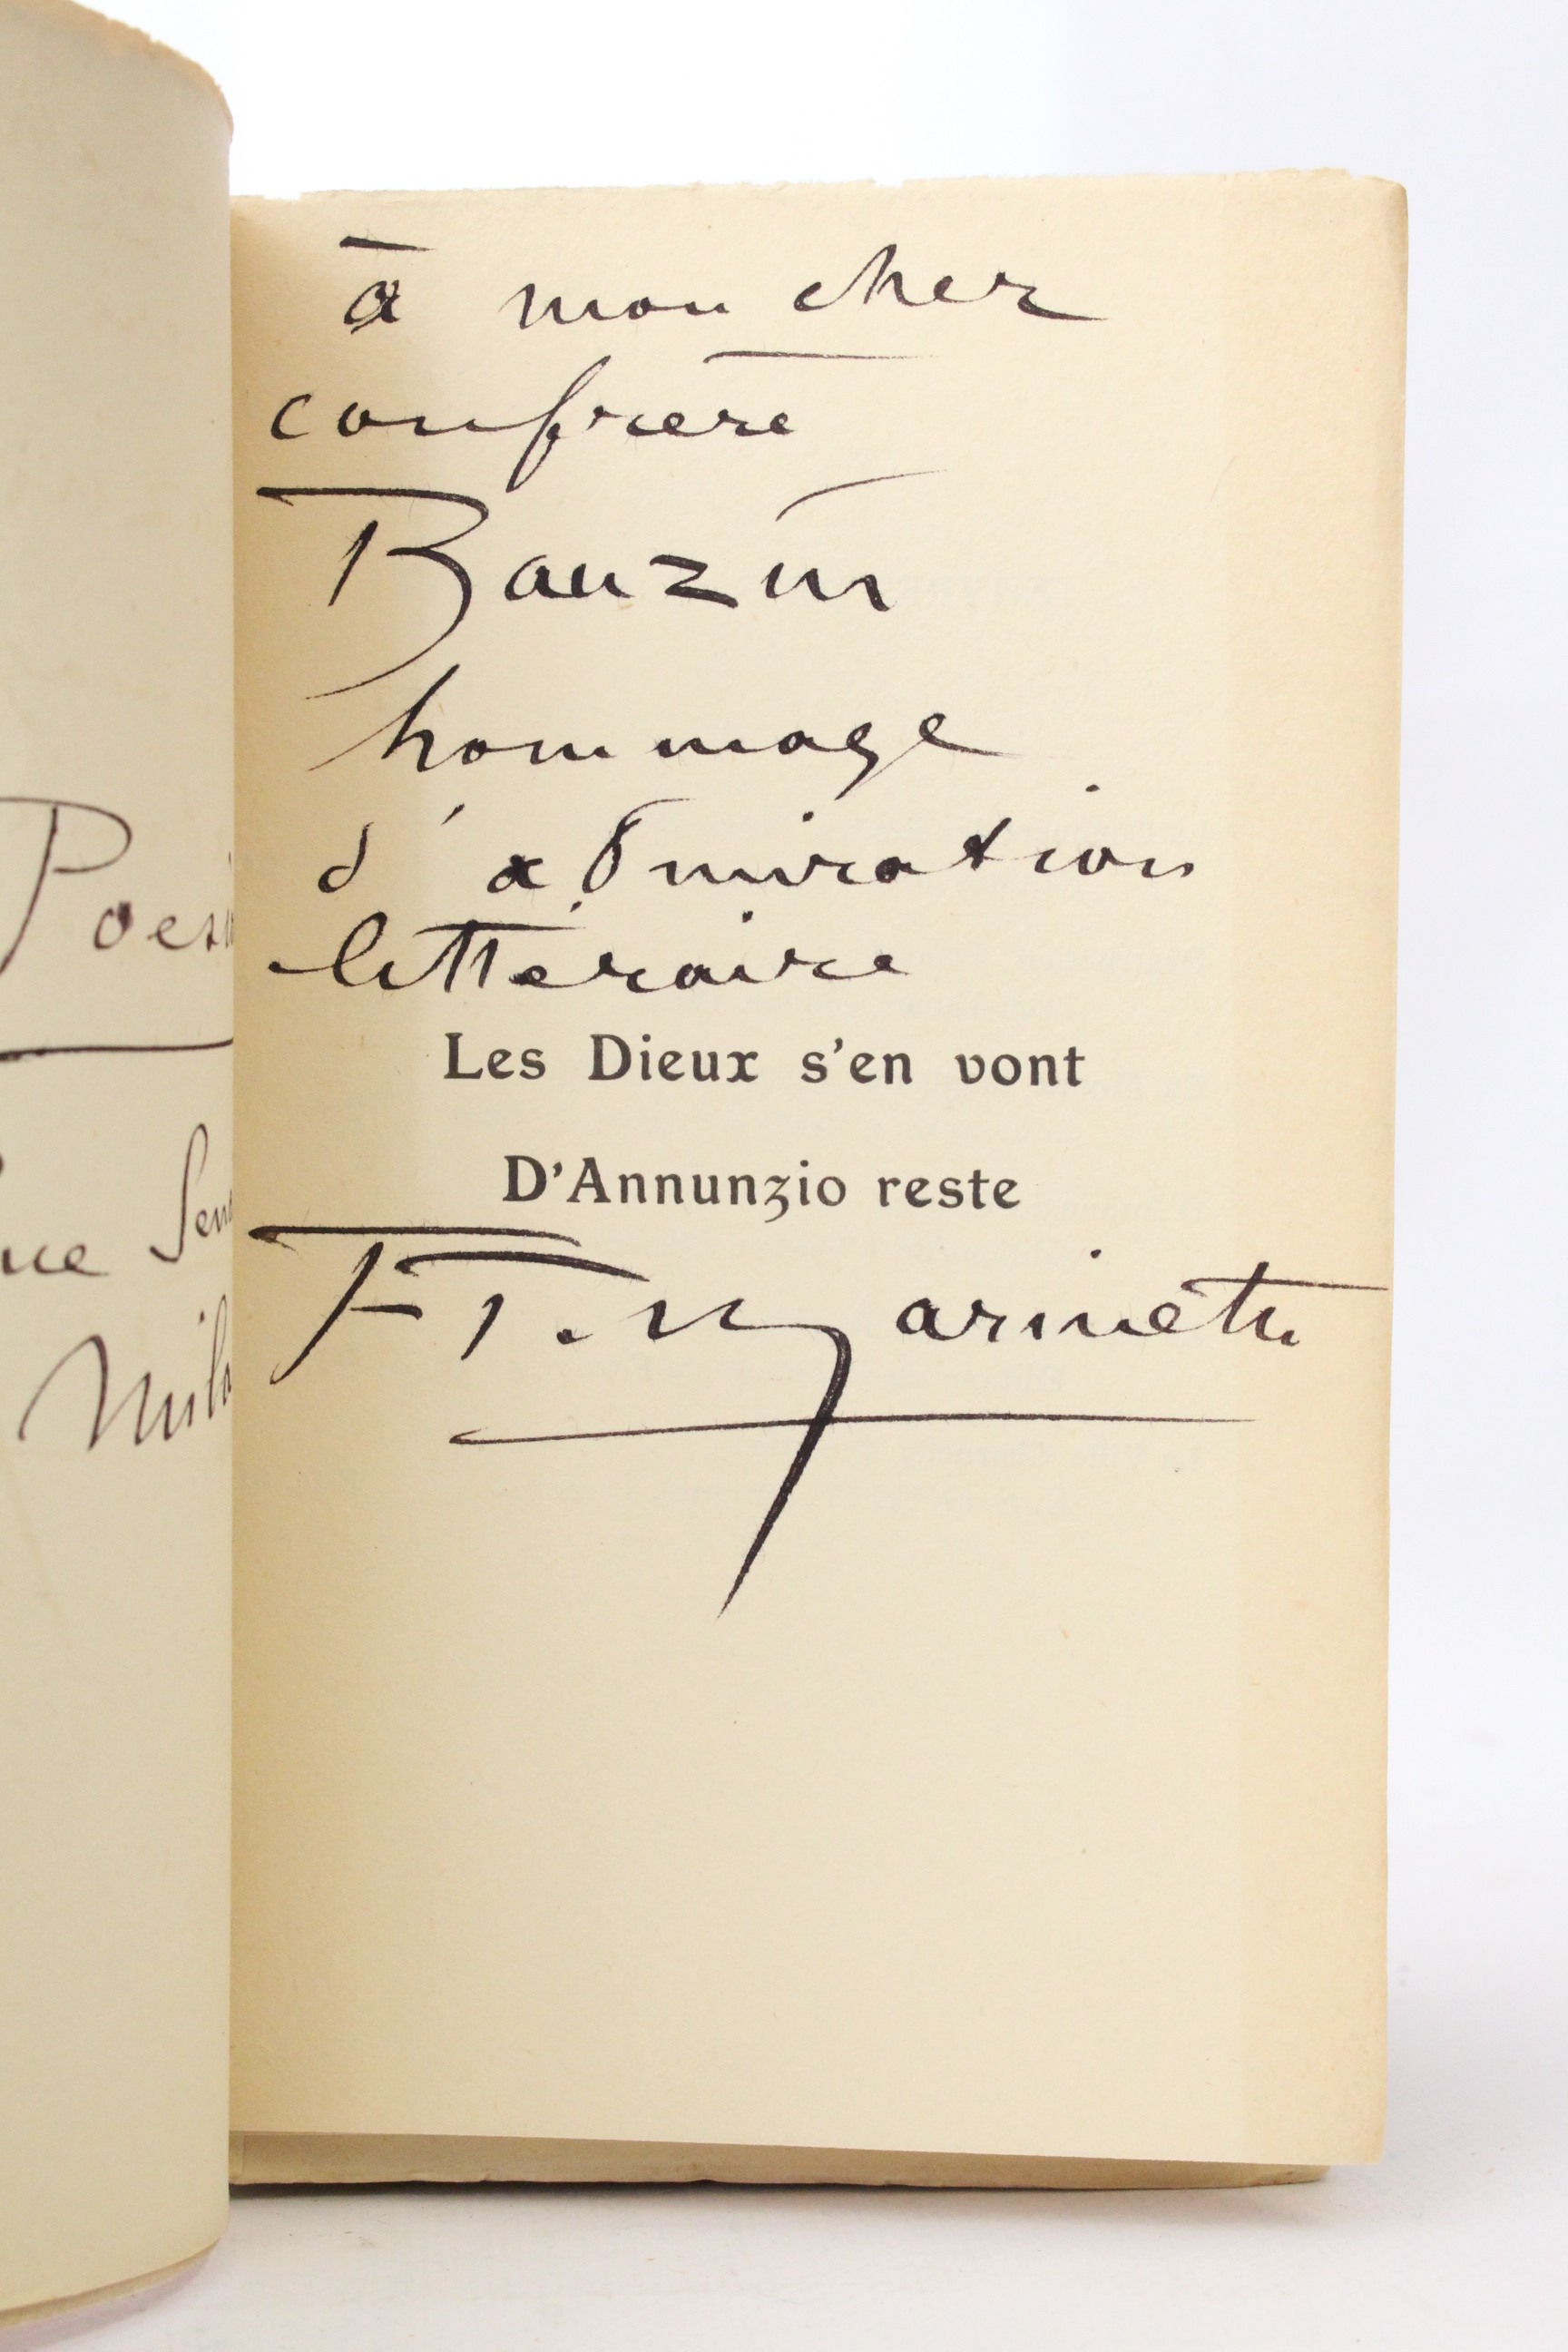 Poesi
ue Sen
Mila
à mon cher
confrère
Bauzin
hommage
d'admiration
littéraire
Les Dieux s'en vont
D'Annunzio reste
F. T. Marinetti